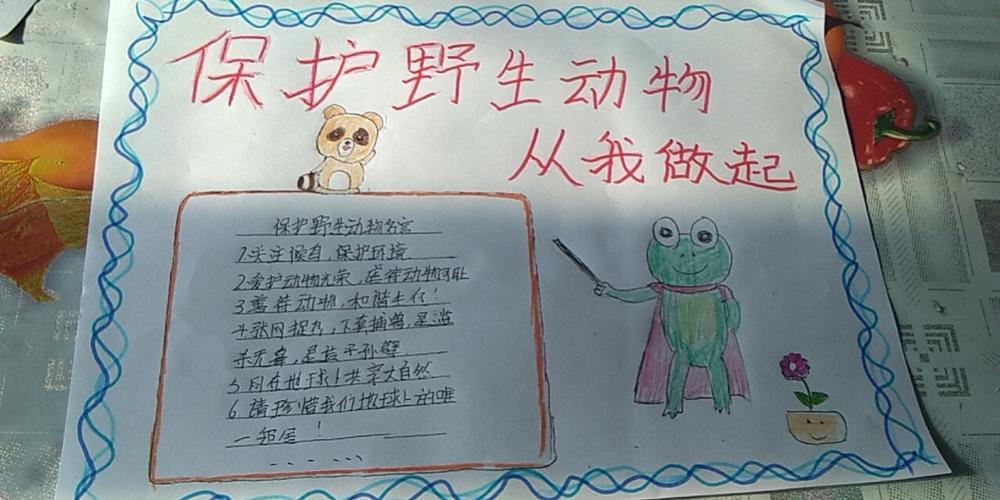 保护野生动物
从我做起
保护野生动物名言
1.关注候鸟,保护环境
2.爱护动物光荣,虐待动物可耻
3.善待动物,和谐共存!
4.张网捉鸟,下套捕兽,是滥
杀无辜,是孩子孙孽.
5.同在地球!共享大自然
6.请珍惜我们地球上的唯
一邻居!